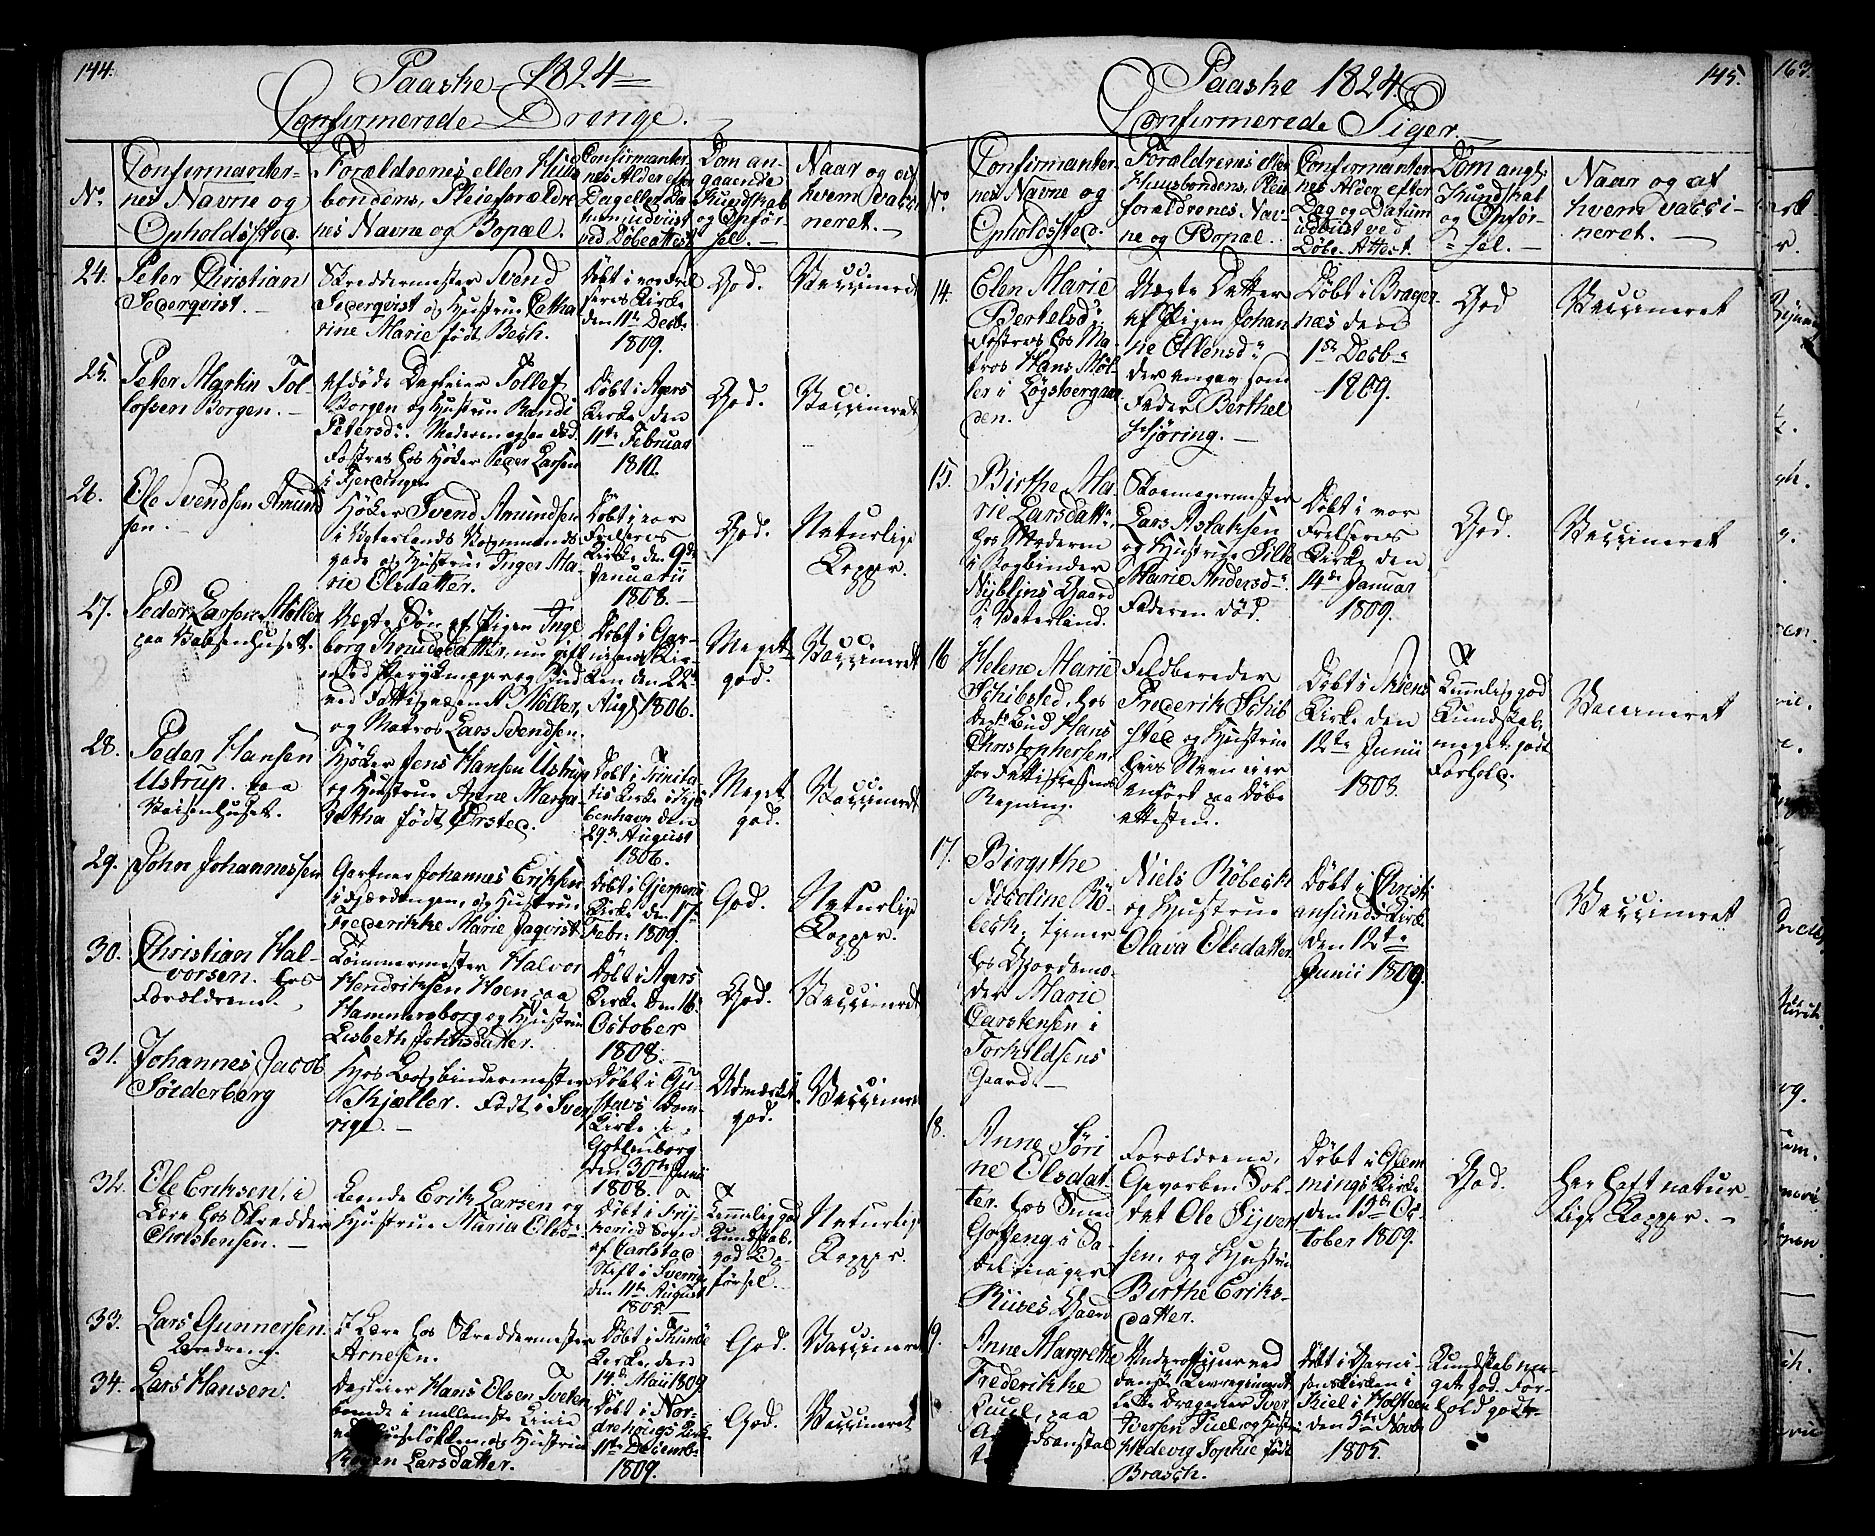 144.
Paaske 1824
Confirmerede Drenge.
No.
Confirmanter-
nes Navne og
Opholdsted.
Forældrenes eller Huus
bondens, Pleieforældre
nes Navne og Bopæl.
Confirmanter
nes Alder efter
Dag eller Da
tum udviist
ved Døbeattest
Dom an-
gaaende
Kundskab
og Opfør-
sel.
Naar og af
hvem vacci
neret.
24.
Peter Christian
Sederqvist.
Skreddermester Svend
Sederqvist og Hustrue Catha
rine Marie født Bech.
Døbt i vor Frel
seres Kirke
den 11te Decbr
1809.
God.
Vaccineret
25.
Peter Martin Tol-
lofsen Borgen.
Afdøde Dagleier Tollef
Borgen og Hustrue Randi
Petersdr. Moderen ogsaa død.
Fostres hos Høker Peder Larsen
i Fjerdingen
Døbt i Agers
Kirke, den
11te Februar
1810.
God.
Vaccineret
26.
Ole Svendsen Amund
sen.
Høker Svend Amundsen
i Vaterlands
gade og Hustrue Inger Ma-
rie Olsdatter.
Døbt i vor
Frelseres
Kirke den 9de
Januarii
1808.
God.
Naturlige
Kopper.
27.
Peder Larsen Møller
paa Vaisenhuset.
Uægte Søn af Pigen Inge
borg Knudsdatter, nu gift
med Parykmager og Bud
ved Fattigvæsenet Møller,
og Matros Lars Svendsen.
Døbt i Gar-
nisons Kir-
ken den 22de
Augs 1806.
Meget
god.
Vaccineret
28.
Peder Hansen
Ustrup. paa
Vaisenhuset.
Høker Jens Hansen Ustrup
og Hustrue Anne Marga-
retha født Ørsted.
Døbt i Trinita
tis Kirke i Kjø
benhavn den
29de August
1806.
Meget
god.
Vaccineret
29.
John Johannessen
Gartner Johannes Eriksen
i Fjerdingen, og Hustrue
Frederikke Marie Jaqvist
Døbt i Gjerpens
Kirke den 17de
Febr. 1809.
God.
Naturlige
Kopper.
30.
Christian Hal-
vorsen. hos
Forældrene.
Tømmermester Halvor
Hendriksen Hoen paa
Hammersborg og Hustrue
Lisbeth Johnsdatter.
Døbt i Agers
Kirke den 16.
October
1808.
God.
Vaccineret
31.
Johannes Jacob
Søiderberg
Hos Bogbindermester
Kjøller. Født i Sver
rige.
Døbt i Gu-
stavs Dom-
Kirke i
Gothenborg
den 30te Junii
1808.
Udmærket
god.
Vaccineret
32.
Ole Eriksen, i
Lære hos Skredder
Christensen.
Bonde Erik Larsen og
Hustrue Maria Olsdr.
Døbt i
Sogn
af Carlstad
Stift i Sverrig
den 11te August
1805.
Temmelig god
Kundskab.
god Op-
førsel.
Naturlige
Kopper.
33.
Lars Gunnersen.
Læredreng.
I Lære hos Skreddermester
Arnesen.
Døbt i
Kirke, den
14de Maii 1809
God.
Vaccineret
34.
Lars Hansen.
Dagleier Hans Olsen Tveten
boende i mellemste Linie
Huseløkken, og Hustrue
Karen Larsdatter.
Døbt i Nor-
drehougs Kirk
11te Decembr
1809.
God.
Vaccineret
Paaske 1824.
145.
Confirmerede Piger.
No.
Confirmanter-
nes Navne og
Opholdsted.
Forældrenes eller
Huusbondens, Plei
forældrenes Nav-
ne og Bopæl.
Confirmanter
nes Alder efter
Dag og Datum
udviist ved
Døbe-Attest.
Dom angl:
Kundskab
og Opfør-
sel.
Naar og af
hvem vacci-
neret.
14.
Elen Marie
Bertelsdr.
Fostres hos Ma-
tros Hans Møl-
ler i Løgsbergaar
den.
Uægte Datter
af Pigen Johan
ne Ellensdr
der angav som
Fader Berthel
Hjøring.
Døbt i Brager-
næs den
1ste Decbr
1809.
God
Vaccineret
15.
Birthe Ma-
rie Larsdattr,
hos Moderen
i Bogbinder
Nyblins Gaard
i Vaterland.
Skomagermester
Lars Aslaksen
og Hustrue Silke
Marie Andersdr
Faderen død.
Døbt i vor
Frelseres
Kirke den
14de Januar
1809.
God.
Vaccineret
16
Helene Marie
Schibsted, hos
Bud Hans
Christophersen
for Fattigkassens
Regning.
Feldbereder
Frederik Schib
sted og Hustrue
hvis Navn ei er
anført paa Døbe
attesten.
Døbt i Skiens
Kirke den
12te Junii
1808.
Temmelig god
Kundskab,
meget godt
Forhold.
Vaccineret
17.
Birgithe
Nicoline Rö-
beck, tjener
hos Gjordemo-
der Marie
Carstensen i
Torkildsens
Gaard.
Niels Röbeck
og Hustrue
Olava Olsdatter
Døbt i Christi
ansunds Kirke
den 12te
Junii 1809.
Vaccineret
18.
Anne Søri
ne Olsdat-
ter. hos Smed
Gofseng i Sa
delmager
Riises Gaard
Forældrene,
Gevorben Sol-
dat Ole Sijver
sen, og Hustrue
Birthe Eriks-
datter.
Døbt i Glem
mings Kirke
den 15de Oc-
tober 1809.
God.
Har haft natur-
lige Kopper.
19.
Anne Margrethe
Frederikke
Ruul, paa
Underofficeer ved
danske Livregiment
lette Dragoner Iver
Iversen Juell og Hustru
Hedevig Sophie født
Brasch.
Døbt i Garni-
sonskirken i
Kiel i Holsteen
den 5te Novbr
1805.
Kundskab me-
get god. For-
hold godt.
163.